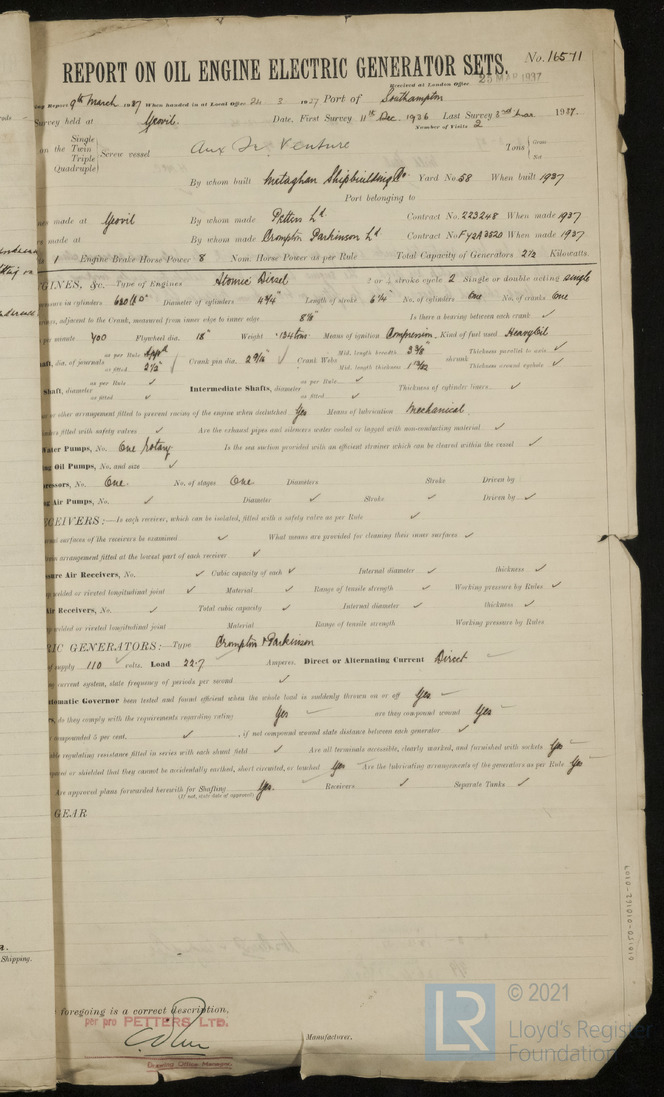 No. 16571
REPORT ON OIL ENGINE ELECTRIC GENERATOR SETS.
Received at London Office 25 MAR 1937
Report 9th March 1937 When handed in at Local Office 24 3 1937 Port of Southampton
Survey held at Yeovil Date, First Survey 11th Dec. 1936 Last Survey 1937.
Number of Visits 2
on the Single Twin Triple Quadruple } Screw vessel Aux Sr. Venture Tons { Gross Net
By whom built Metaghan Shipbuilding Co Yard No. 58 When built 1937
Port belonging to
made at Yeovil By whom made Petters Ld Contract No. 223248 When made 1937
made at By whom made Crompton Parkinson Ld Contract No. FY2A3520 When made 1937
1 Engine Brake Horse Power 8 Nom. Horse Power as per Rule Total Capacity of Generators 2½ Kilowatts.
GINES, &c.—Type of Engines Atomic Diesel 2 or 4 stroke cycle 2 Single or double acting single
in cylinders Diameter of cylinders 4¾" Length of stroke No. of cylinders One No. of cranks One
adjacent to the Crank, measured from inner edge to inner edge Is there a bearing between each crank ✓
per minute Flywheel dia. 18" Weight Means of ignition Compression Kind of fuel used Heavy Oil
dia. of journals as per Rule App'd as fitted 2½" Crank pin dia. Crank Webs Mid. length breadth Mid. length thickness shrunk Thickness parallel to axis ✓ Thickness around eyehole ✓
Shaft, diameter as per Rule ✓ as fitted ✓ Intermediate Shafts, diameter as per Rule ✓ as fitted ✓ Thickness of cylinder liners ✓
or other arrangement fitted to prevent racing of the engine when declutched Yes Means of lubrication Mechanical
fitted with safety valves ✓ Are the exhaust pipes and silencers water cooled or lagged with non-conducting material ✓
Water Pumps, No. One Rotary Is the sea suction provided with an efficient strainer which can be cleared within the vessel ✓
Oil Pumps, No. and size ✓
ressors, No. One No. of stages One Diameters Stroke Driven by
Air Pumps, No. ✓ Diameter ✓ Stroke ✓ Driven by ✓
CEIVERS:—Is each receiver, which can be isolated, fitted with a safety valve as per Rule ✓
surfaces of the receivers be examined ✓ What means are provided for cleaning their inner surfaces ✓
arrangement fitted at the lowest part of each receiver ✓
sure Air Receivers, No. ✓ Cubic capacity of each ✓ Internal diameter ✓ thickness ✓
welded or riveted longitudinal joint ✓ Material ✓ Range of tensile strength ✓ Working pressure by Rules ✓
Air Receivers, No. ✓ Total cubic capacity ✓ Internal diameter ✓ thickness ✓
welded or riveted longitudinal joint Material Range of tensile strength Working pressure by Rules
RIC GENERATORS:—Type Crompton & Parkinson
of supply 110 volts. Load 22.7 Amperes. Direct or Alternating Current Direct
current system, state frequency of periods per second ✓
tomatic Governor been tested and found efficient when the whole load is suddenly thrown on or off Yes
do they comply with the requirements regarding rating Yes are they compound wound Yes
compounded 5 per cent. ✓, if not compound wound state distance between each generator ✓
regulating resistance fitted in series with each shunt field ✓ Are all terminals accessible, clearly marked, and furnished with sockets Yes
or shielded that they cannot be accidentally earthed, short circuited, or touched Yes Are the lubricating arrangements of the generators as per Rule Yes
Are approved plans forwarded herewith for Shafting Yes. Receivers ✓ Separate Tanks ✓
(If not, state date of approval)
GEAR
Shipping.
foregoing is a correct description,
per pro PETTERS LTD.
Manufacturer.
Drawing Office Manager.
010150-010162-0109
LR
© 2021
Lloyd's Register
Foundation